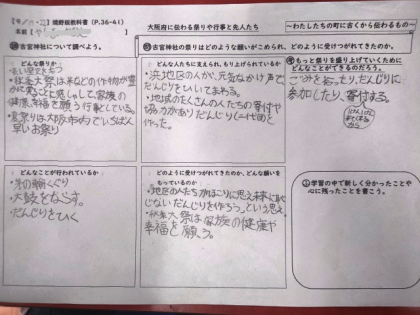 熊野郷教科書（P.36-41）
大阪府に伝わる祭りや行事と先人たち
～わたしたちの町に古くから伝わるもの～
名前【
古宮神社について調べよう。
古宮神社の祭りはどのような願いがこめられ、どのように受けつがれてきたのか。
もっと祭りを盛り上げていくために
どんなことができるのだろう。
ごみをひろったり、だんじりに
参加したり、寄付する。
どんな祭りか
・秋季大祭は米などの作物が豊かに
まることに感しゃして、家族の
健康、幸福を願う行事としている。
・夏祭りは大阪市内でいちばん
早いお祭り
どんな人たちに支えられ、どのように行われているか
・浜地区の人が、元気なかけ声で、
だんじりをひいてまわる。
・地域のたくさんの人たちの寄付や
協力があり、だんじり(一代目)を
作った。
どんなことが行われているか
・茅の輪くぐり
・太鼓をならす。
・だんじりをひく
どのように受けつがれてきたのか、どんな願いを
もっているのか
・地区の人たちがほこりに思え未来に恥
じないだんじりを作ろう、という思え。
・秋季大祭は家族の健康や
幸福を願う。
①学習の中で新しく分かったことや
心に残ったことを書こう。